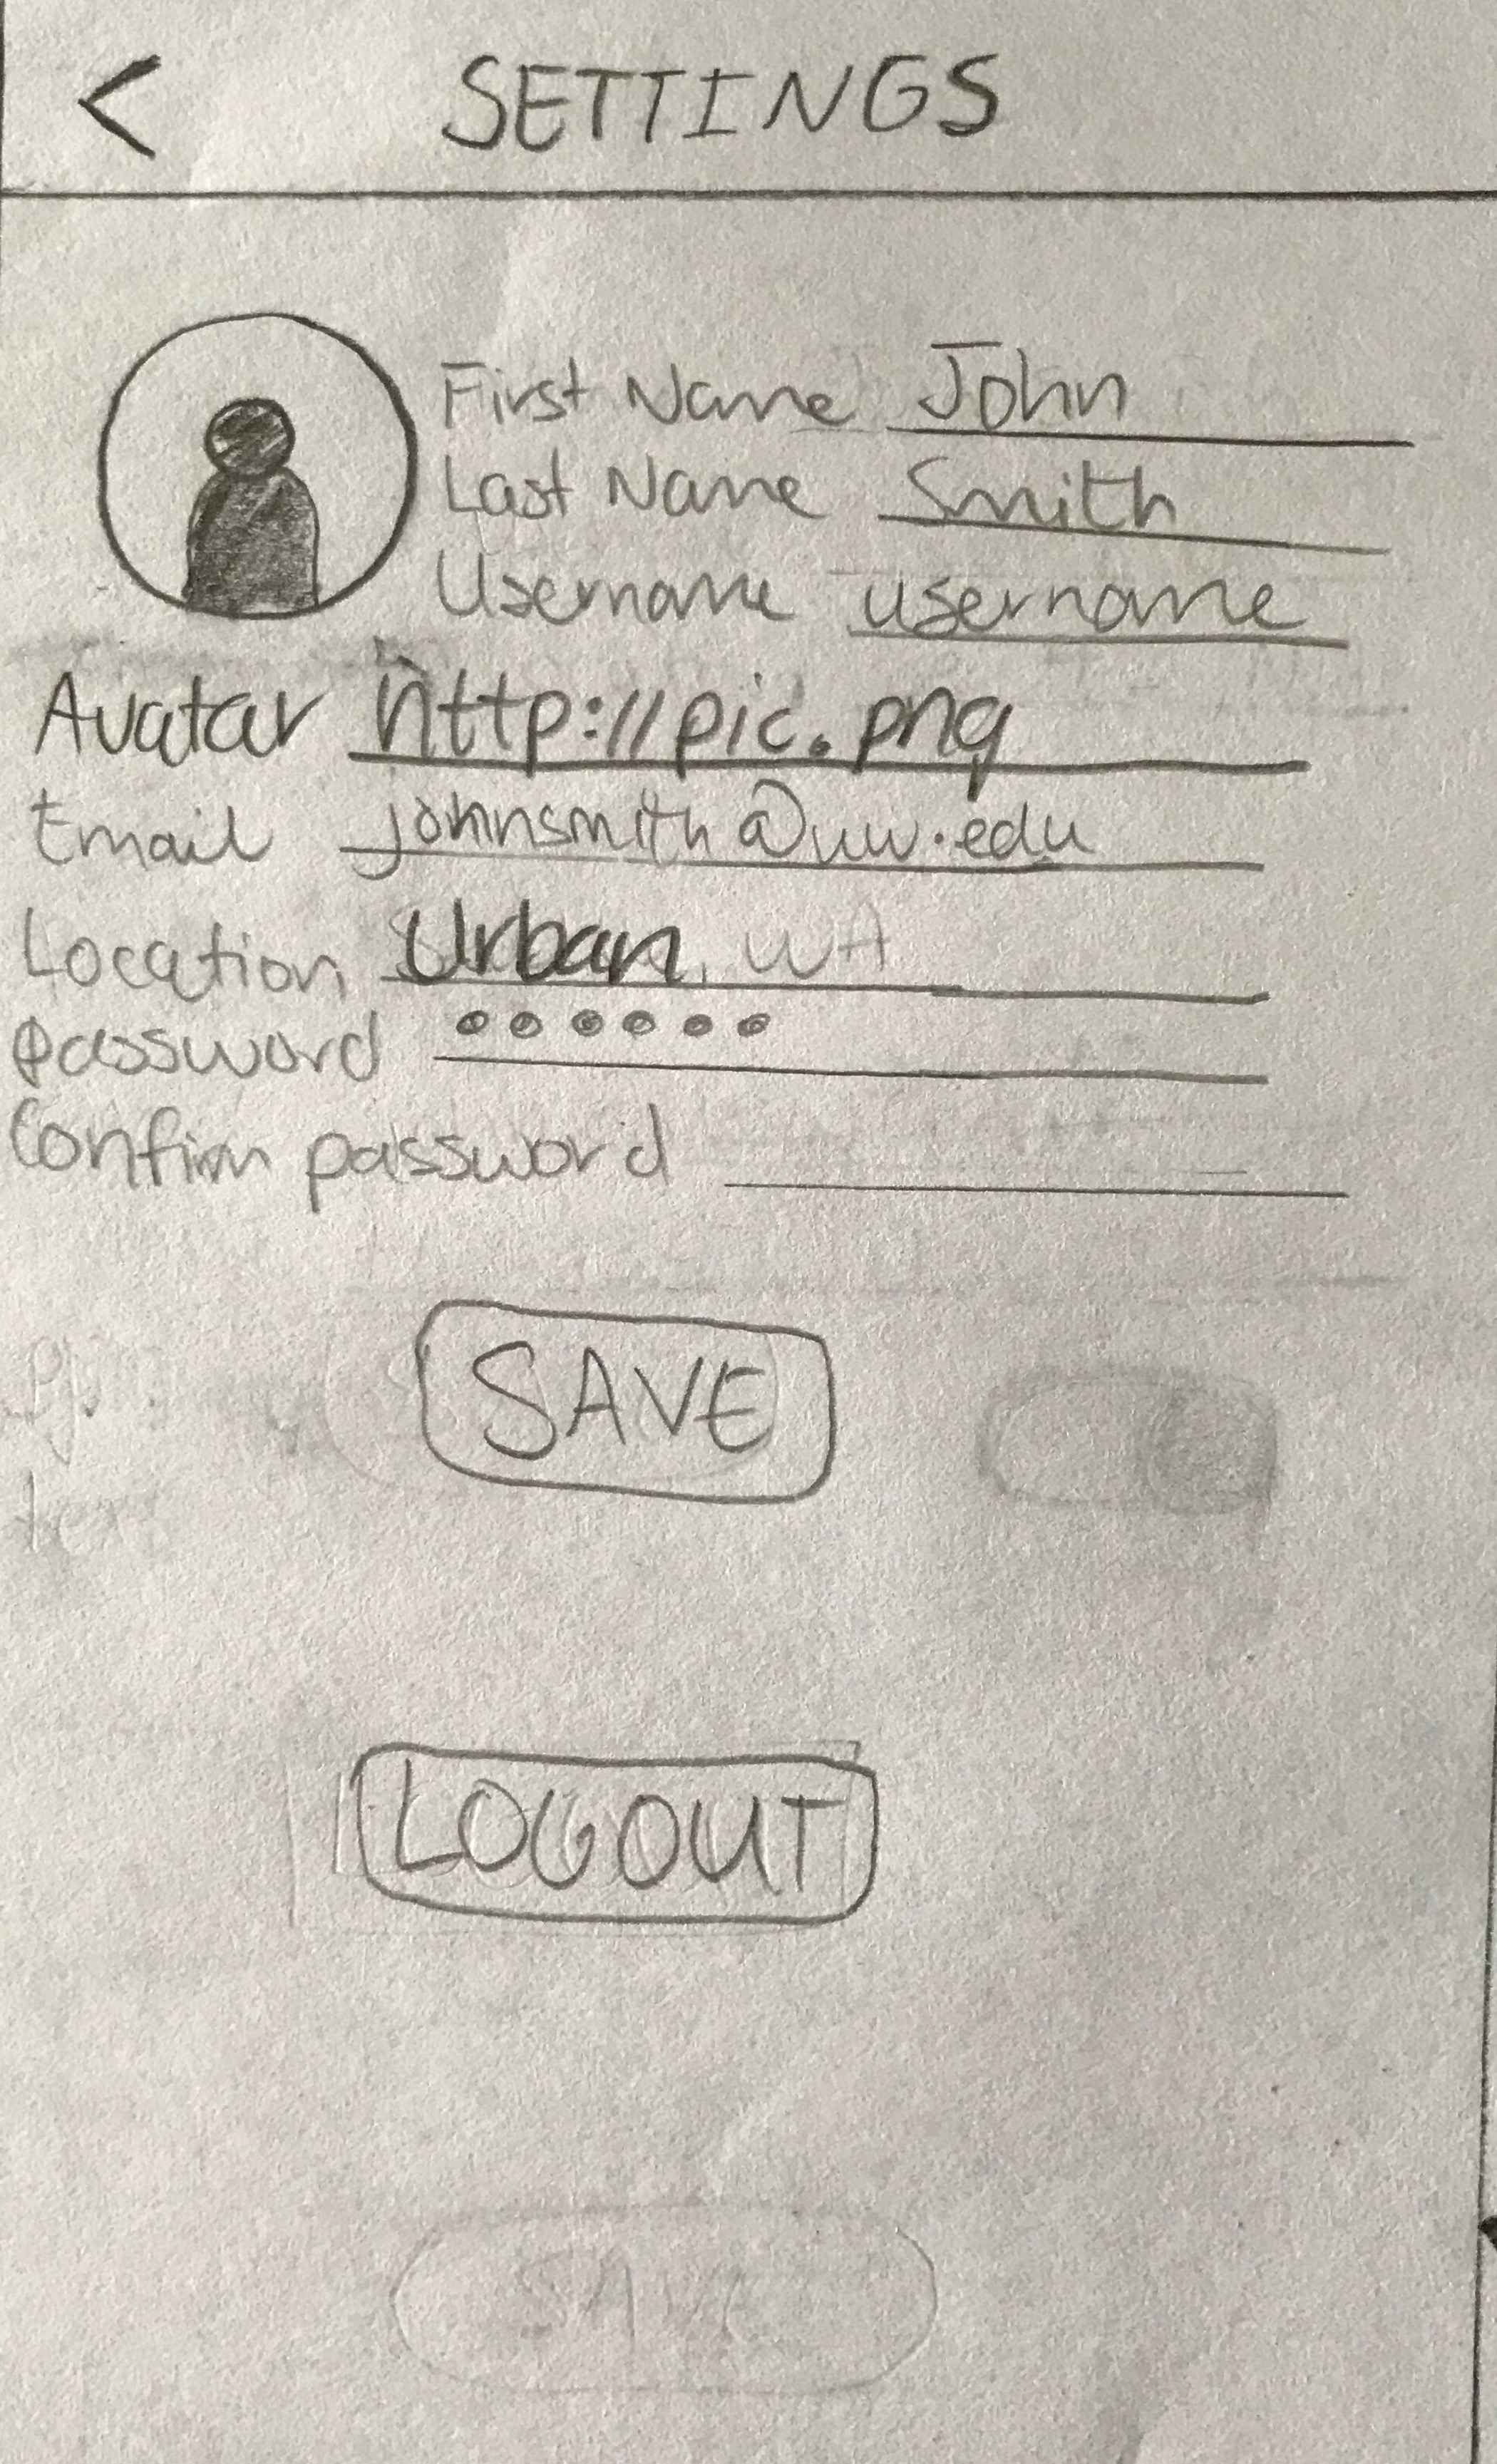 < SETTINGS
First Name John
Last Name Smith
Username username
Avatar http://pic.png
Email johnsmith@uw.edu
Location Urban, WA
Password ••••••
Confirm password
SAVE
LOGOUT
SAVE